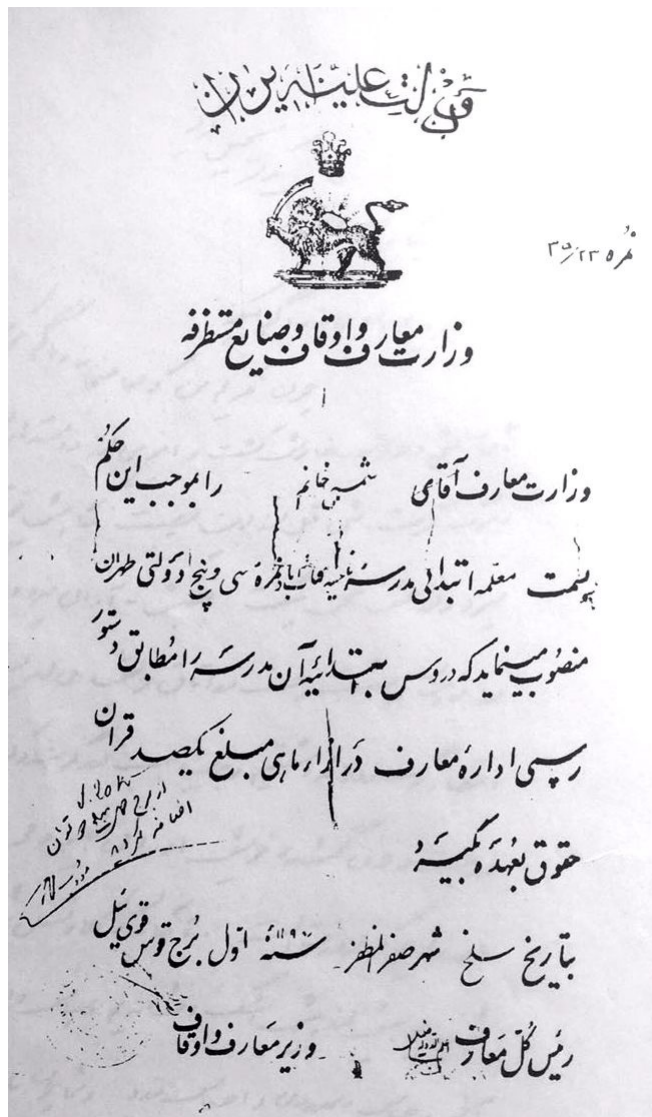 دولت علیّه ایران
نمره ۳۵/۲۳
وزارت معارف و اوقاف و صنایع مستظرفه
وزارت معارف آقای شمسی خانم را بموجب این حکم
بسمت معلمه ابتدائی مدرسهٔ نمرهٔ سی و پنج دولتی طهران
منصوب مینماید که دروس ابتدائیه آن مدرسه را مطابق دستور
رسمی ادارهٔ معارف در ازاء ماهی مبلغ یکصد قران
حقوق بعهده بگیرد
بتاریخ سلخ شهر صفر المظفر سنهٔ اول برج قوس قوی ئیل
رئیس کل معارف
وزیر معارف و اوقاف